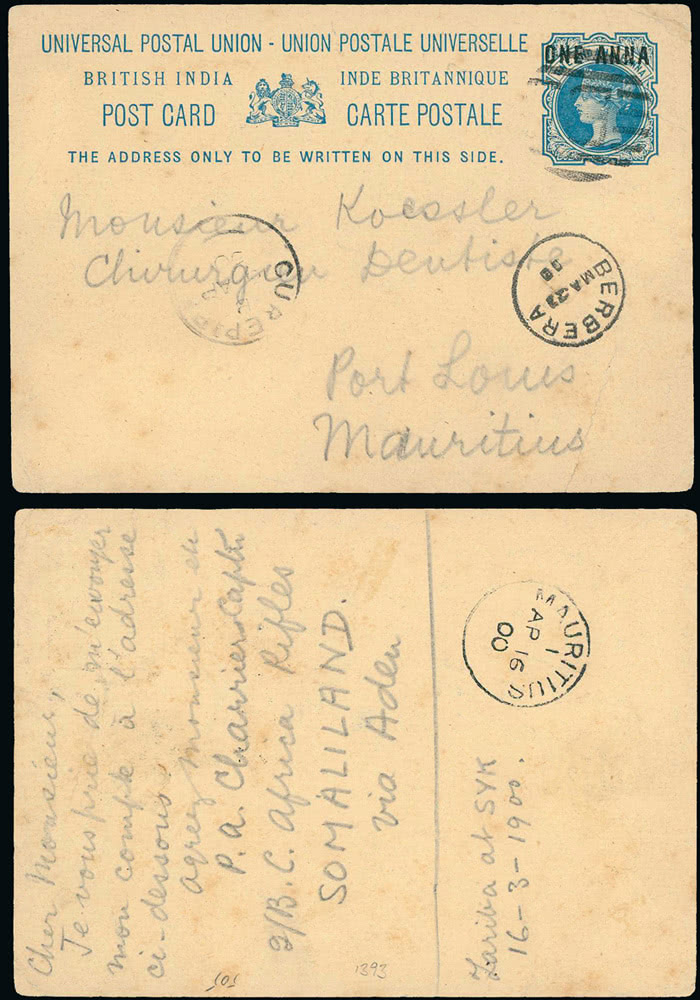 UNIVERSAL POSTAL UNION - UNION POSTALE UNIVERSELLE
BRITISH INDIA INDE BRITANNIQUE
POST CARD CARTE POSTALE
THE ADDRESS ONLY TO BE WRITTEN ON THIS SIDE.
ONE ANNA
Monsieur Koessler
Chirurgien Dentiste
Port Louis
Mauritius
CUREPIP
BERBERA
MA 23
00
Cher Monsieur,
Je vous prie de m'envoyer
mon compte à l'adresse
ci-dessous.
agreez Monsieur etc
P. A. Charrier Captn
2/B. C. Africa Rifles
SOMALILAND.
via Aden
MAURITIUS
1
AP 16
00
Zariba at SYK
16-3-1900.
1393